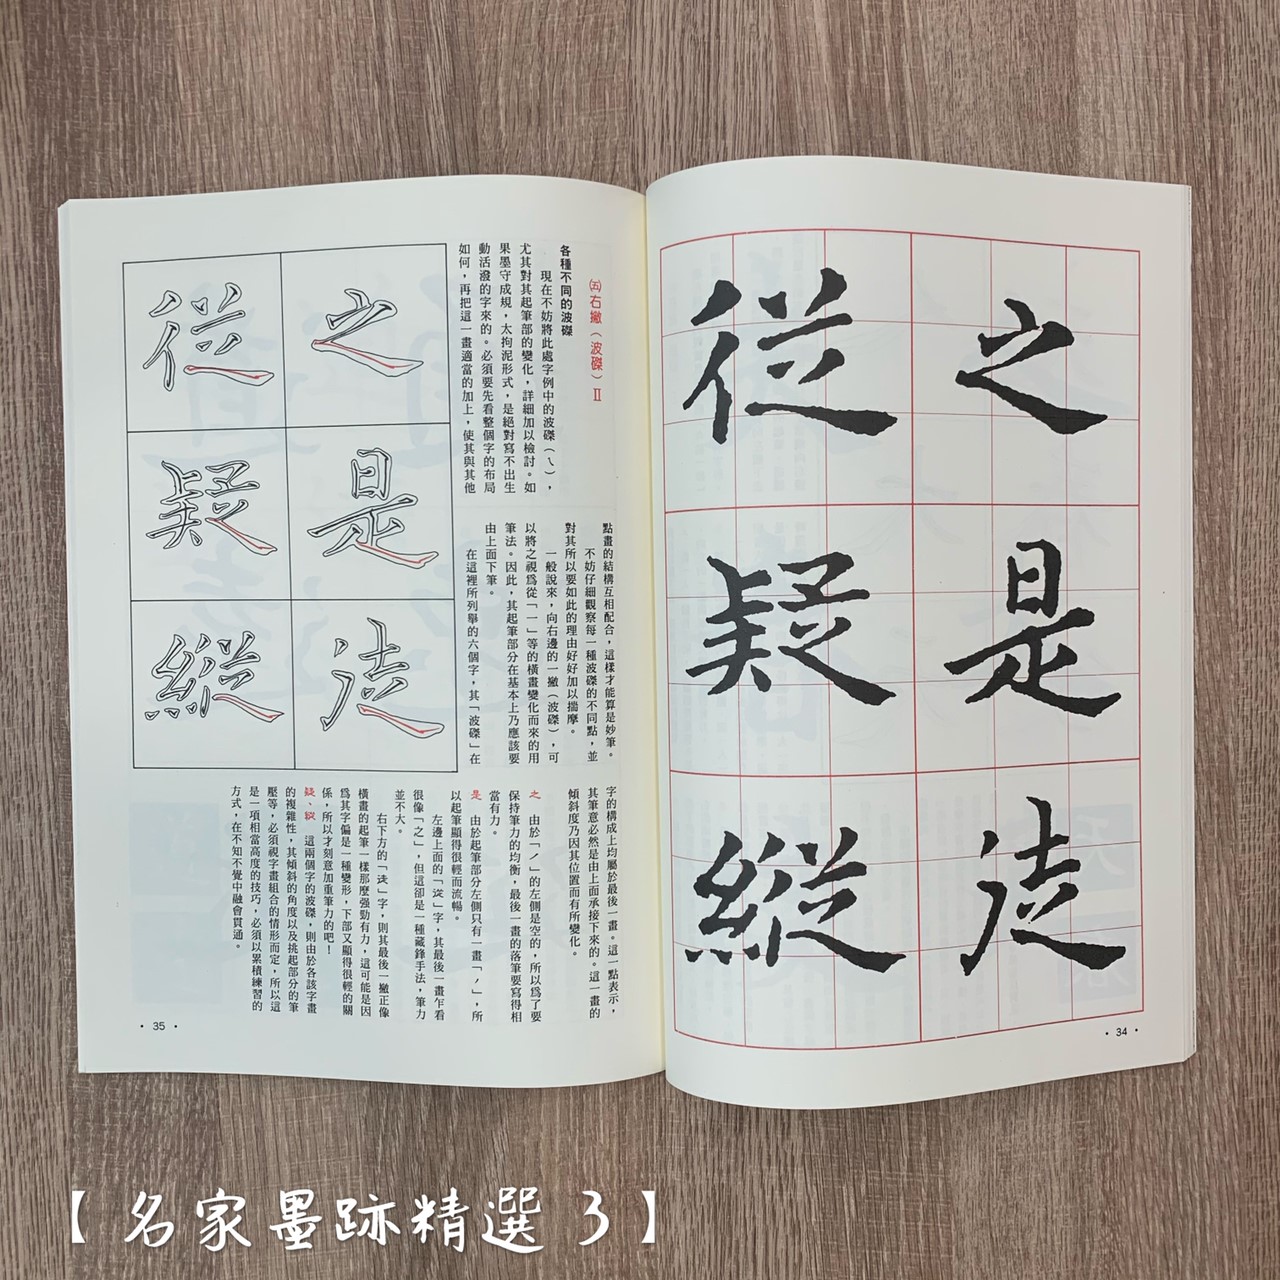 之
是
徒
従
疑
縦
• 34 •
㈤右撇（波磔）Ⅱ
各種不同的波磔
現在不妨將此處字例中的波磔（㇏），
尤其對其起筆部的變化，詳細加以檢討。如
果墨守成規，太拘泥形式，是絕對寫不出生
動活潑的字來的。必須要先看整個字的布局
如何，再把這一畫適當的加上，使其與其他
點畫的結構互相配合，這樣才能算是妙筆。
不妨仔細觀察每一種波磔的不同點，並
對其所以要如此的理由好好加以揣摩。
一般說來，向右邊的一撇（波磔），可
以將之視爲從「一」等的橫畫變化而來的用
筆法。因此，其起筆部分在基本上乃應該要
由上面下筆。
在這裡所列舉的六個字，其「波磔」在
字的構成上均屬於最後一畫。這一點表示，
其筆意必然是由上面承接下來的。這一畫的
傾斜度乃因其位置而有所變化。
之　由於「ノ」的左側是空的，所以爲了要
保持筆力的均衡，最後一畫的落筆要寫得相
當有力。
是　由於起筆部分左側只有一畫「ノ」，所
以起筆顯得很輕而流暢。
左邊上面的「從」字，其最後一畫乍看
很像「之」，但這卻是一種藏鋒手法，筆力
並不大。
右下方的「徒」字，則其最後一撇正像
橫畫的起筆一樣那麼强勁有力，這可能是因
爲其字偏是一種變形，下部又顯得很輕的關
係，所以才刻意加重筆力的吧！
疑、縱　這兩個字的波磔，則由於各該字畫
的複雜性，其傾斜的角度以及挑起部分的筆
壓等，必須視字畫組合的情形而定，所以這
是一項相當高度的技巧，必須以累積練習的
方式，在不知不覺中融會貫通。
之
是
徒
従
疑
縦
• 35 •
【名家墨跡精選 3】